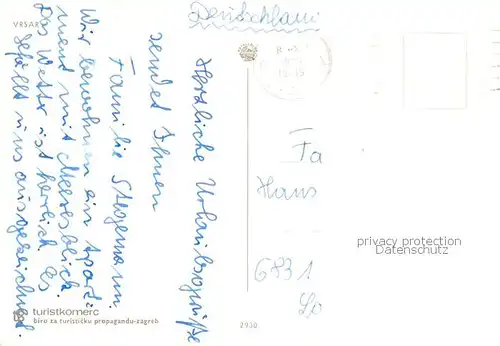 VRSAR
Deutschland
Herzliche Urlaubsgrüße
sendet Ihnen
Familie Stegemann
Wir bewohnen ein Apart-
ment mit Meeresblick.
Das Wetter ist herrlich. Es
gefällt uns ausgezeichnet.
Fa
Hans
6831
privacy protection
Datenschutz
turistkomerc
biro za turističku propagandu-zagreb
2930